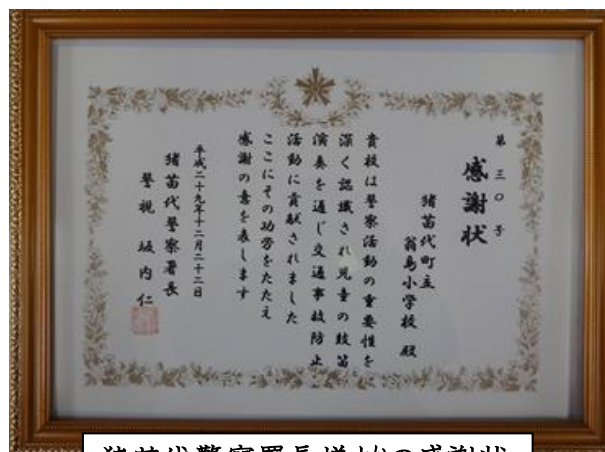 第三〇号
感謝状
猪苗代町立
翁島小学校 殿
貴校は警察活動の重要性を
深く認識され児童の鼓笛
演奏を通じ交通事故防止
活動に貢献されました
ここにその功労をたたえ
感謝の意を表します
平成二十九年十二月二十二日
猪苗代警察署長
警視 坂内仁
猪苗代警察署長様からの感謝状